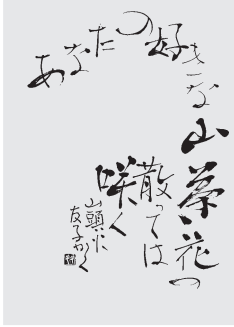 あなたの好きな山茶花の
散っては
咲く
山頭火
友子かく